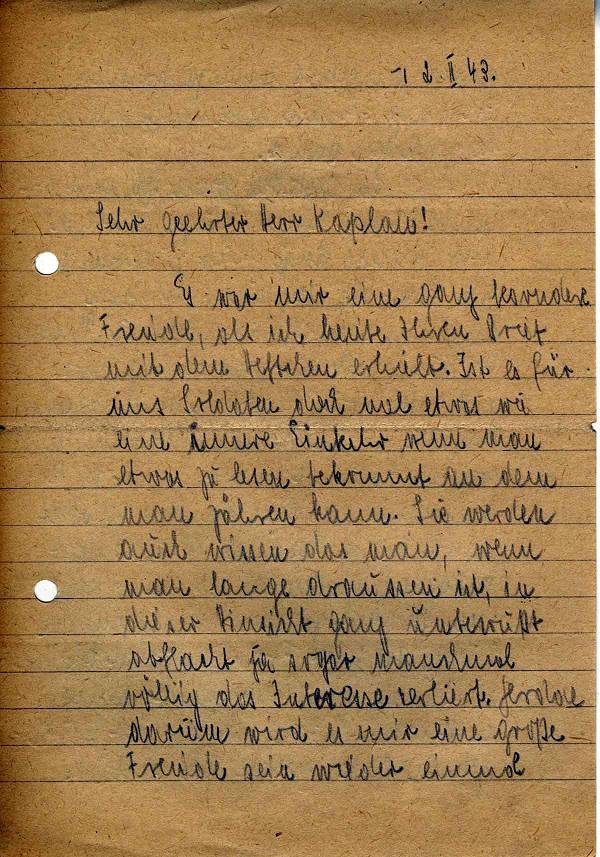 12.II.43.
Sehr geehrter Herr Kaplan!
Es war mir eine ganz besondere
Freude, als ich heute Ihren Brief
mit dem Heftchen erhielt. Ist es für
uns Soldaten doch mal etwas wie
eine innere Einkehr wenn man
etwas zu lesen bekommt an dem
man zähren kann. Sie werden
auch wissen das man, wenn
man lange draussen ist, in
dieser Hinsicht ganz unbewußt
abflacht ja sogar manchmal
völlig das Interesse verliert. Gerade
darum wird es mir eine große
Freude sein wieder einmal